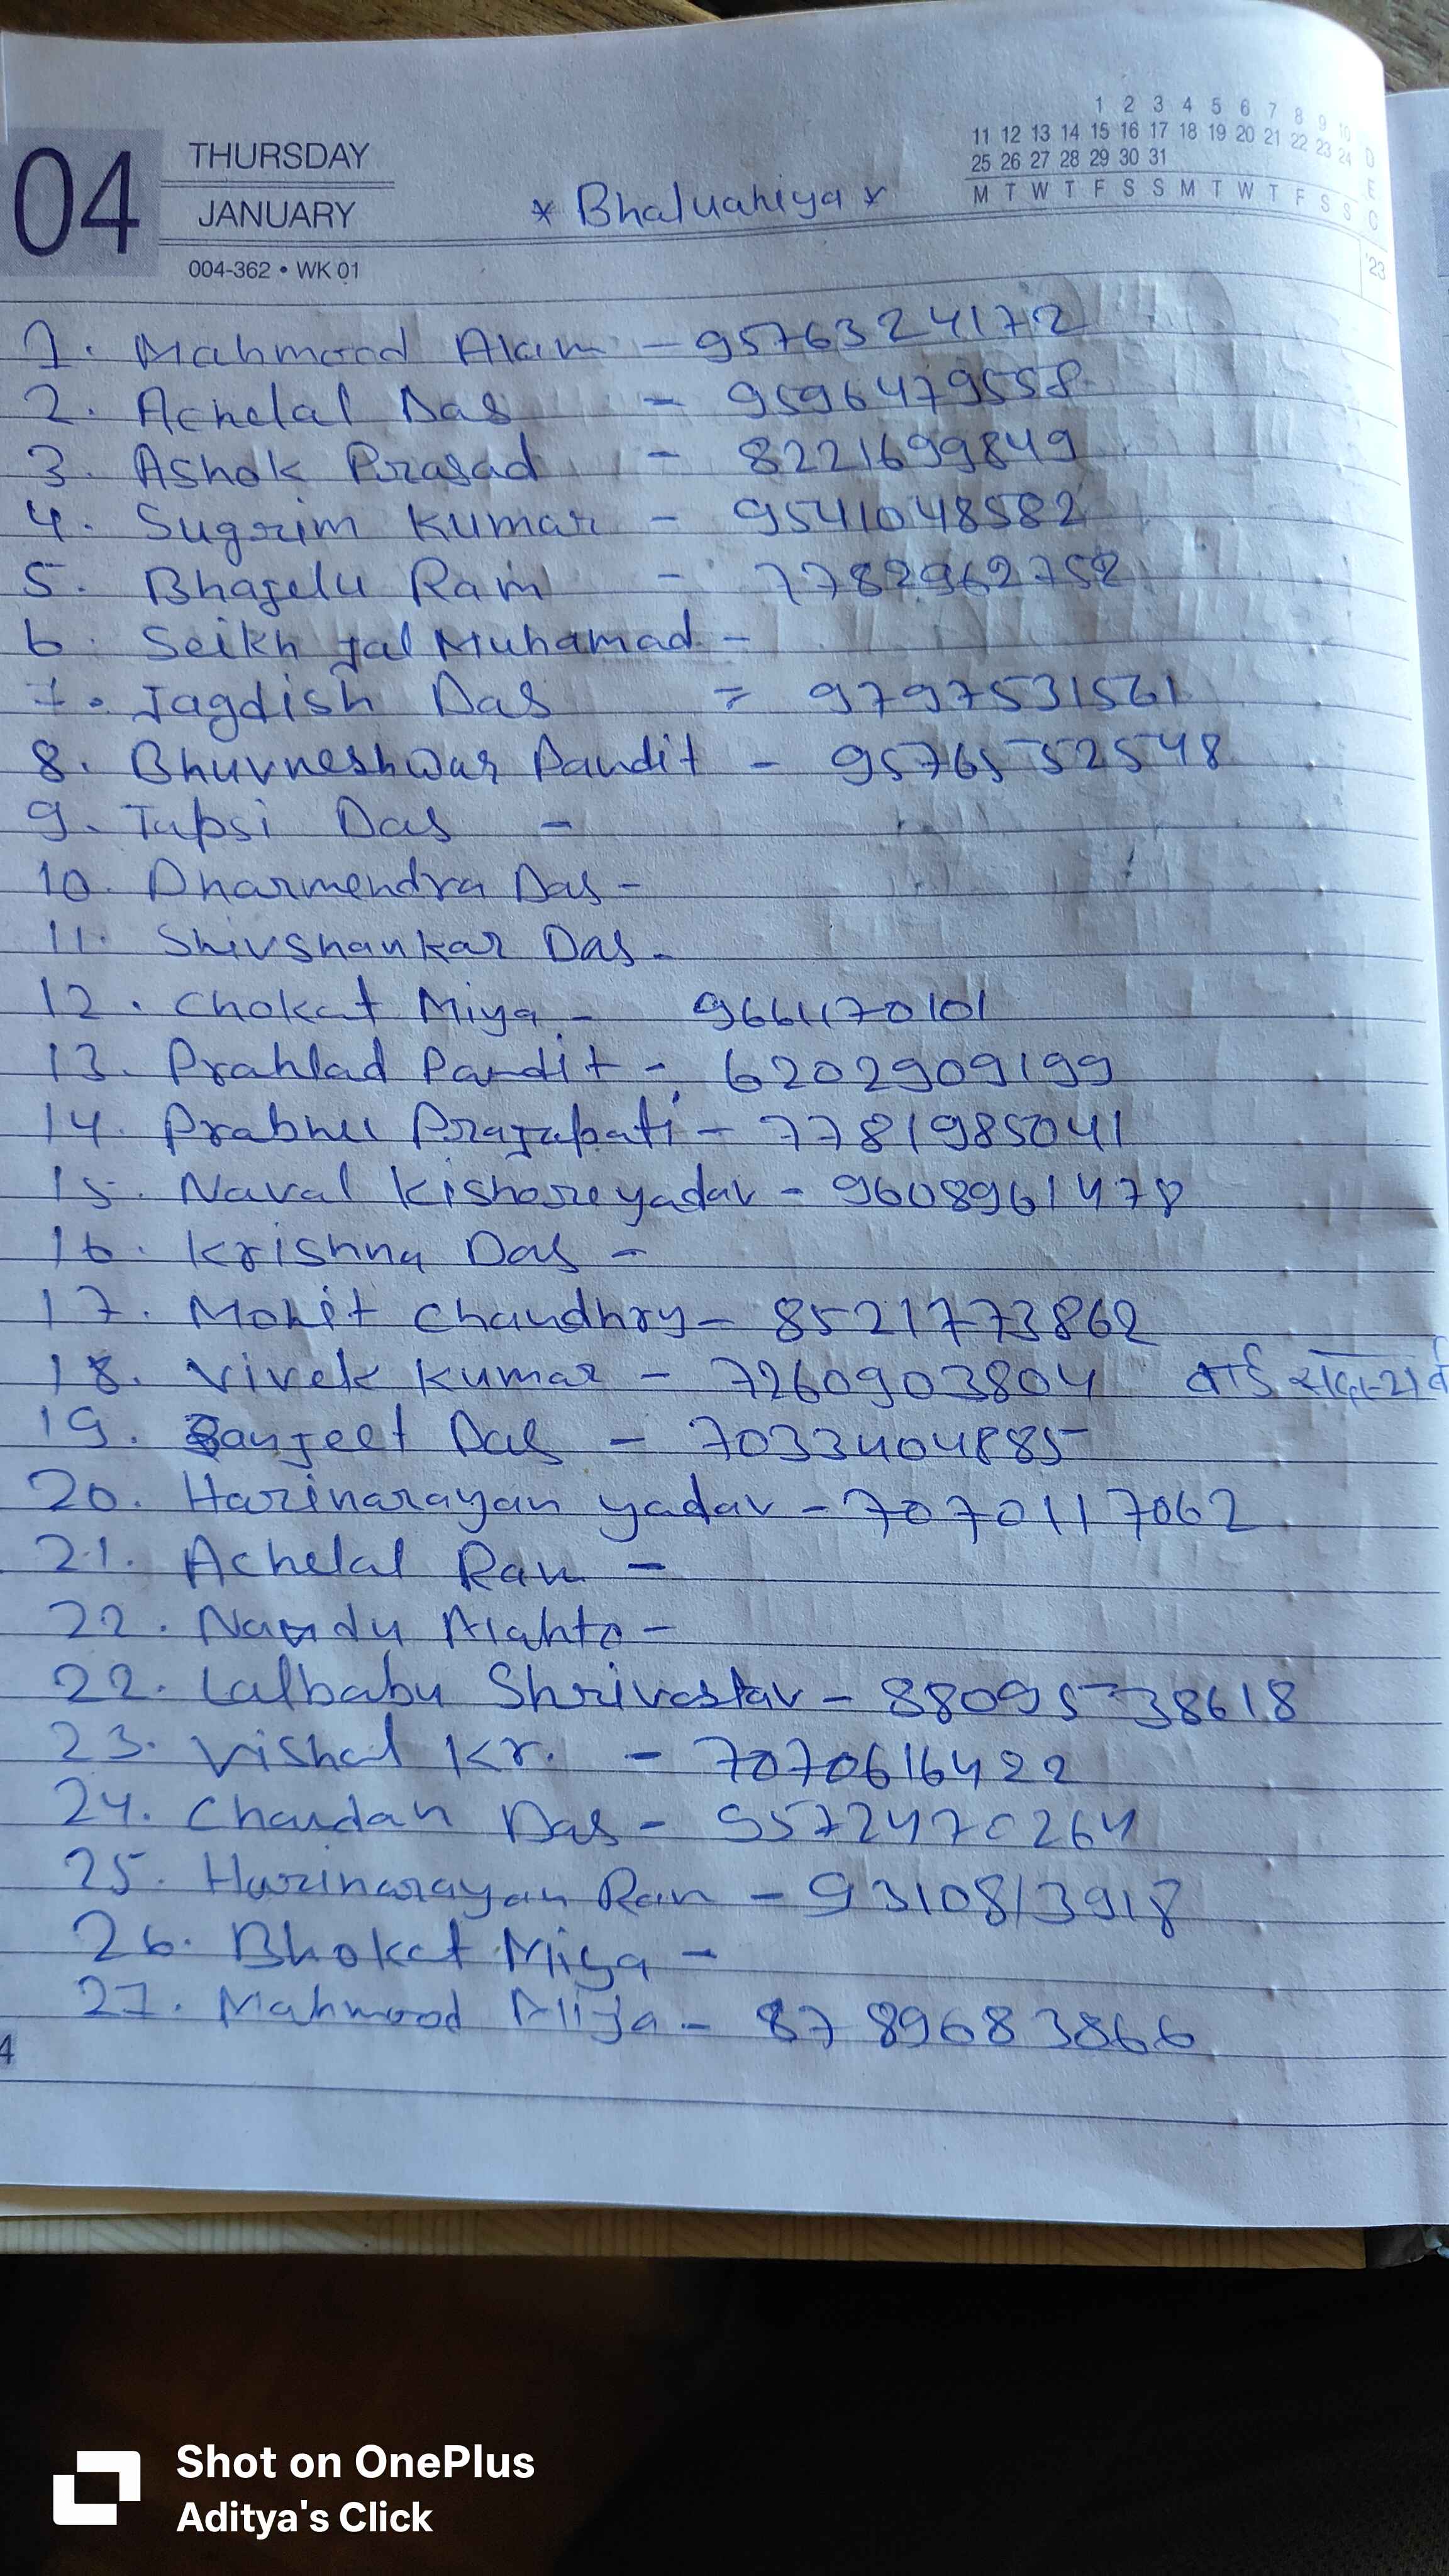 04
THURSDAY
JANUARY
004-362 • WK 01
* Bhaluahiya *
1 2 3 4 5 6 7 8 9 10
11 12 13 14 15 16 17 18 19 20 21 22 23 24
25 26 27 28 29 30 31
M T W T F S S M T W T F S S
DEC '23
1. Mahmood Alam - 9576324172
2. Achelal Das - 9596479558
3. Ashok Prasad - 8221699849
4. Sugrim Kumar - 9541048582
5. Bhagelu Ram - 7782962752
6. Seikh Jal Muhamad -
7. Jagdish Das = 9797531561
8. Bhuvneshwar Pandit - 9576552548
9. Tapsi Das -
10. Dharmendra Das -
11. Shivshankar Das -
12. Chokat Miya -
13. Prahlad Pandit - 6202909199
14. Prabhu Prajapati - 7781985041
15. Naval Kishore yadav - 9608961478
16. Krishna Das -
17. Mohit Chaudhry - 8521773862
18. Vivek Kumar - 7260903804 वार्ड
19. Sanjeet Das - 7033404885
20. Harinarayan yadav - 7070117062
21. Achelal Ram -
22. Nandu Mahto -
22. Lalbabu Shrivastav - 8809538618
23. Vishal Kr. - 7070616422
24. Chandan Das - 9572470264
25. Harinarayan Ram - 9310813918
26. Bhokat Miya -
27. Mahmood Miya - 8789683866
4
Shot on OnePlus
Aditya's Click